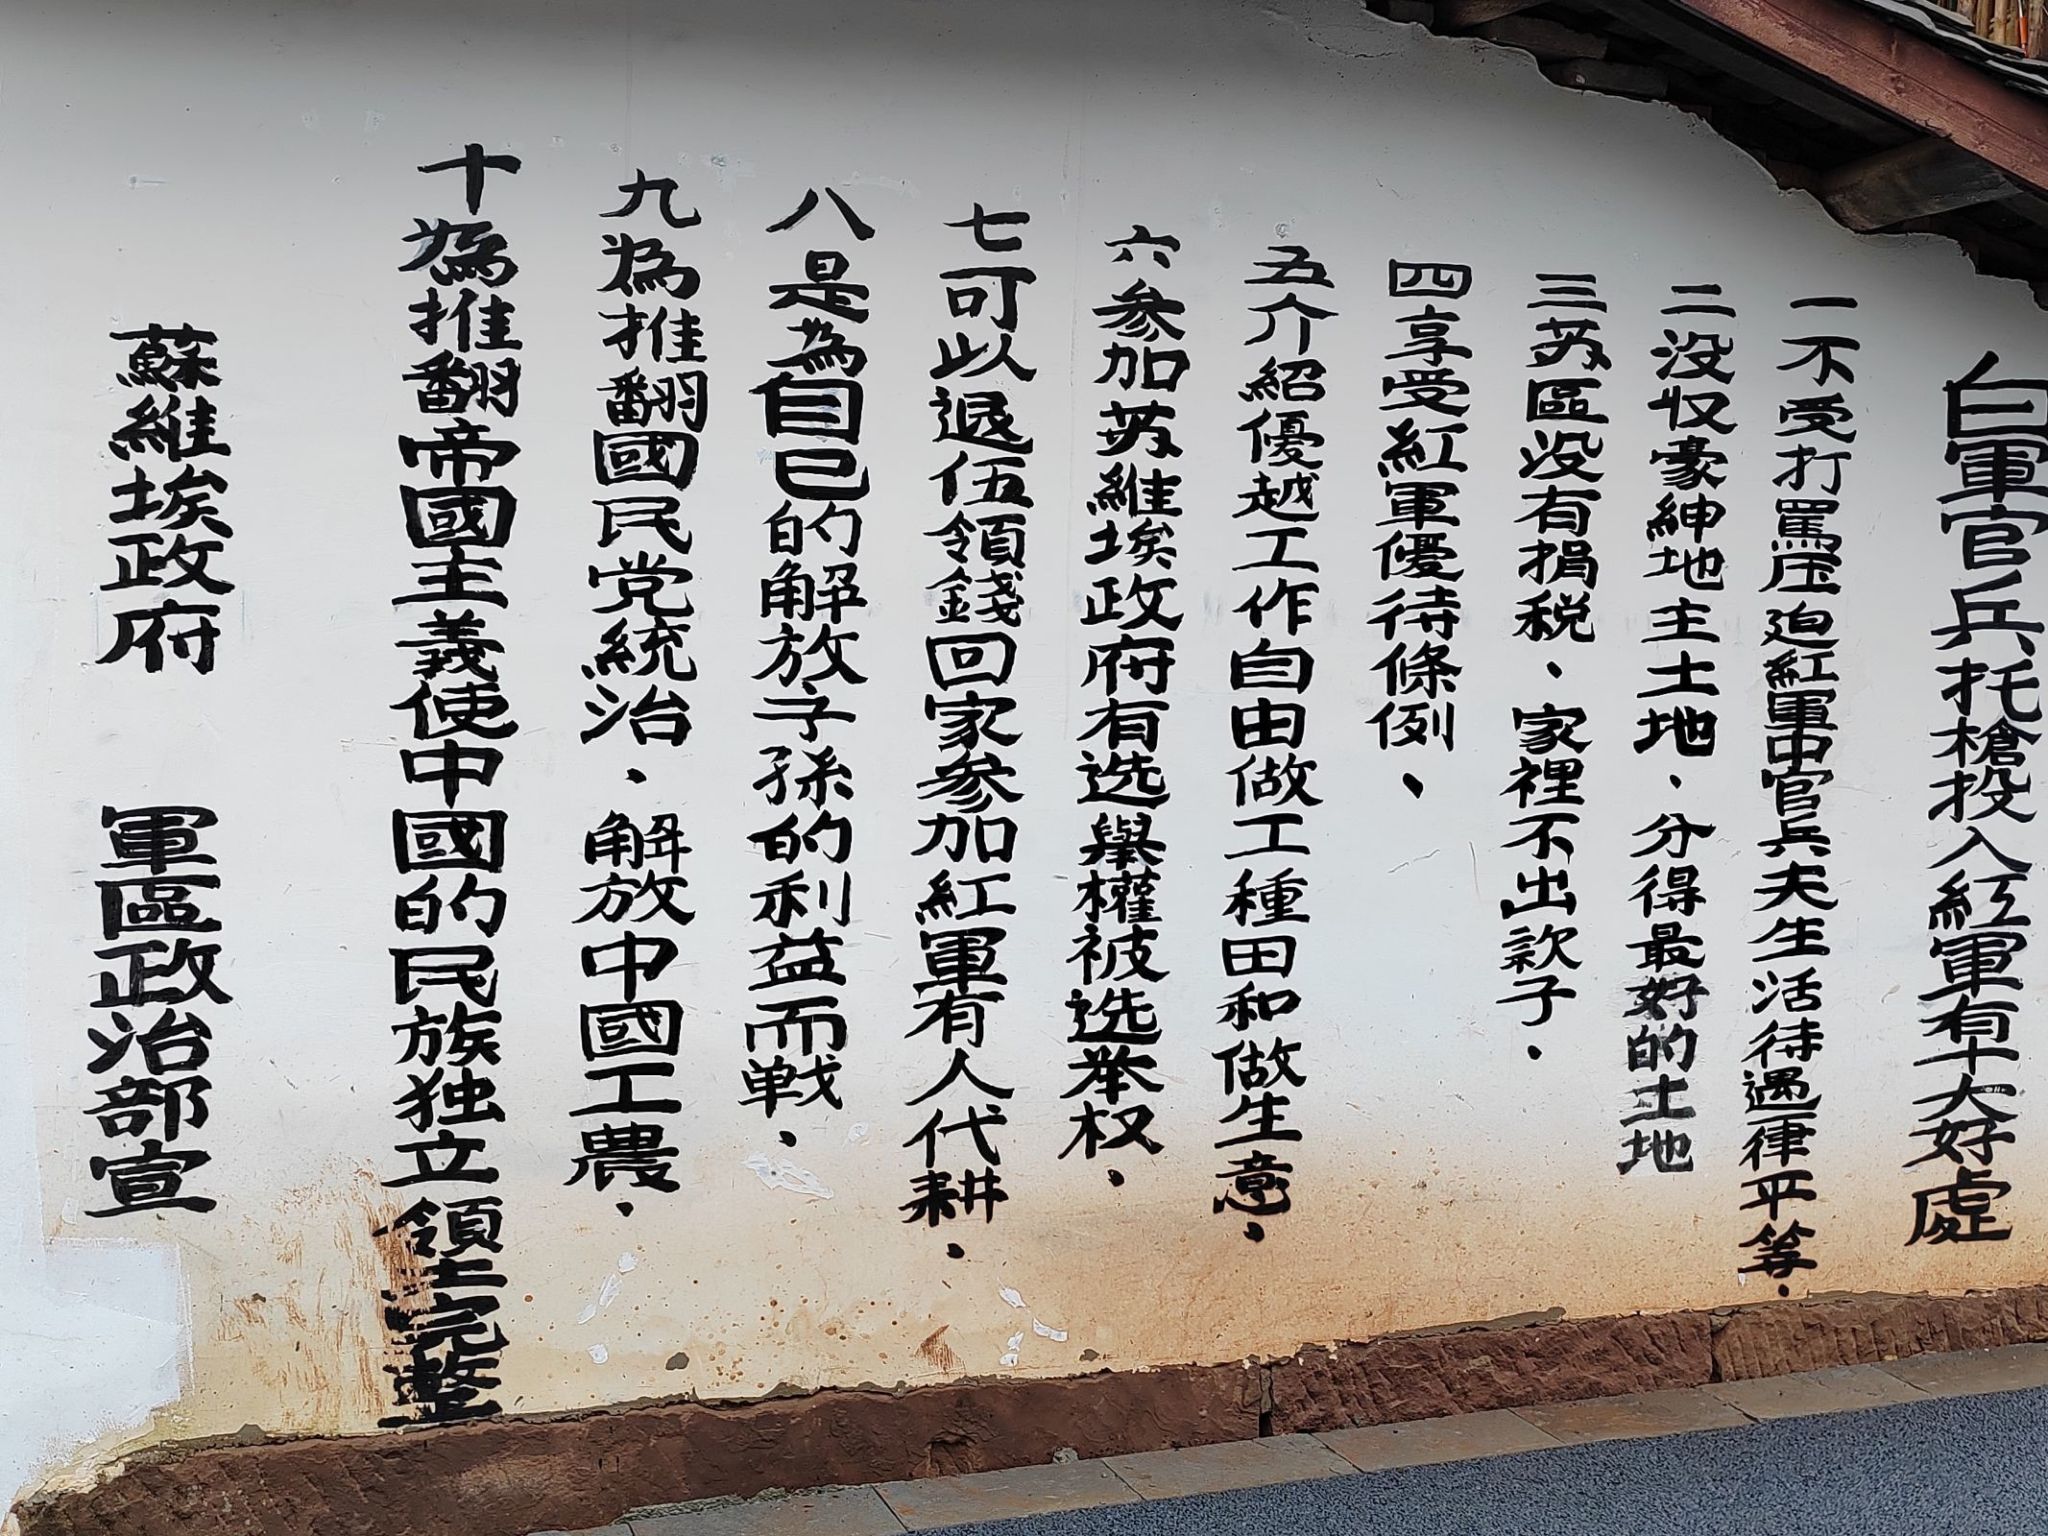 白軍官兵托槍投入紅軍有十大好處
一不受打罵压迫紅軍中官兵夫生活待遇一律平等．
二没収豪紳地主土地．分得最好的土地
三苏區没有捐税、家裡不出款子．
四享受紅軍優待條例、
五介紹優越工作自由做工種田和做生意、
六参加苏維埃政府有选舉權被选举权．
七可以退伍領錢回家参加紅軍有人代耕．
八是為自己的解放子孫的利益而戦．
九為推翻國民党統治、解放中國工農．
十為推翻帝國主義使中國的民族独立領土完整
蘇維埃政府　軍區政治部宣